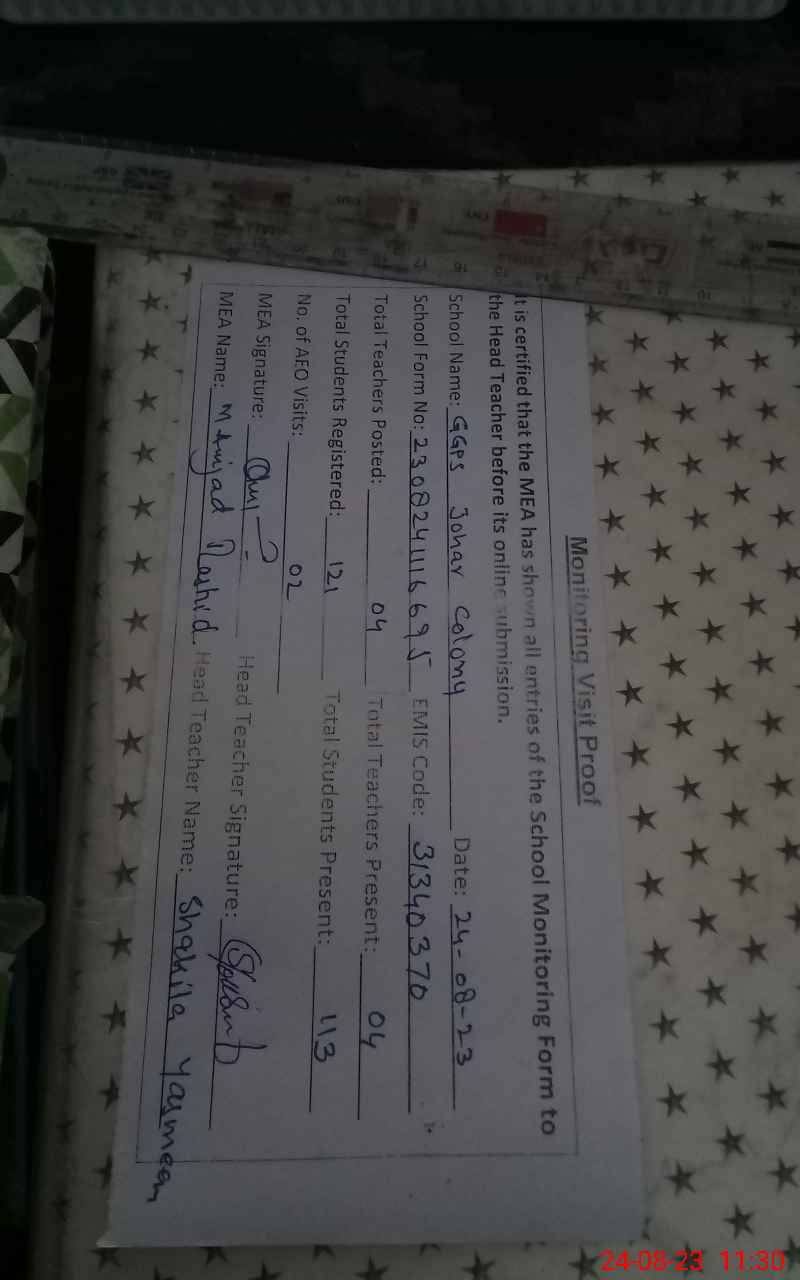 Monitoring Visit Proof
It is certified that the MEA has shown all entries of the School Monitoring Form to
the Head Teacher before its online submission.
School Name: GGPS Johar Colony Date: 24-08-23
School Form No: 2308241116695 EMIS Code: 31340370
Total Teachers Posted: 04 Total Teachers Present: 04
Total Students Registered: 121 Total Students Present: 113
No. of AEO Visits: 02
MEA Signature: Head Teacher Signature:
MEA Name: M Amjad Rashid. Head Teacher Name: Shakila Yasmeen
24-08-23 11:30